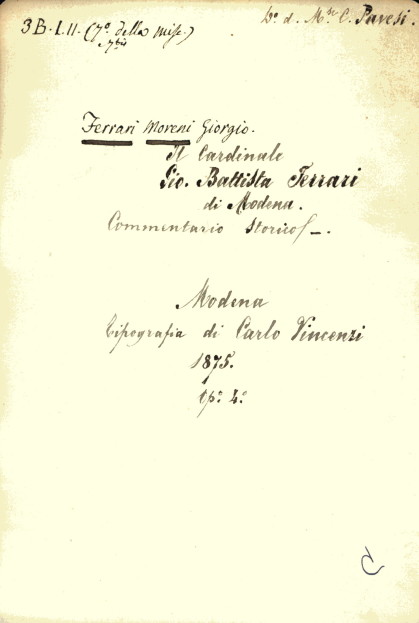 3 B. I. 11. (7º della misc.)
7bis
Dº d. Mse C. Pavesi.
Ferrari Moreni Giorgio.
Il Cardinale
Gio. Battista Ferrari
di Modena.
Commentario Storico —.
Modena
Tipografia di Carlo Vincenzi
1875.
4º
C